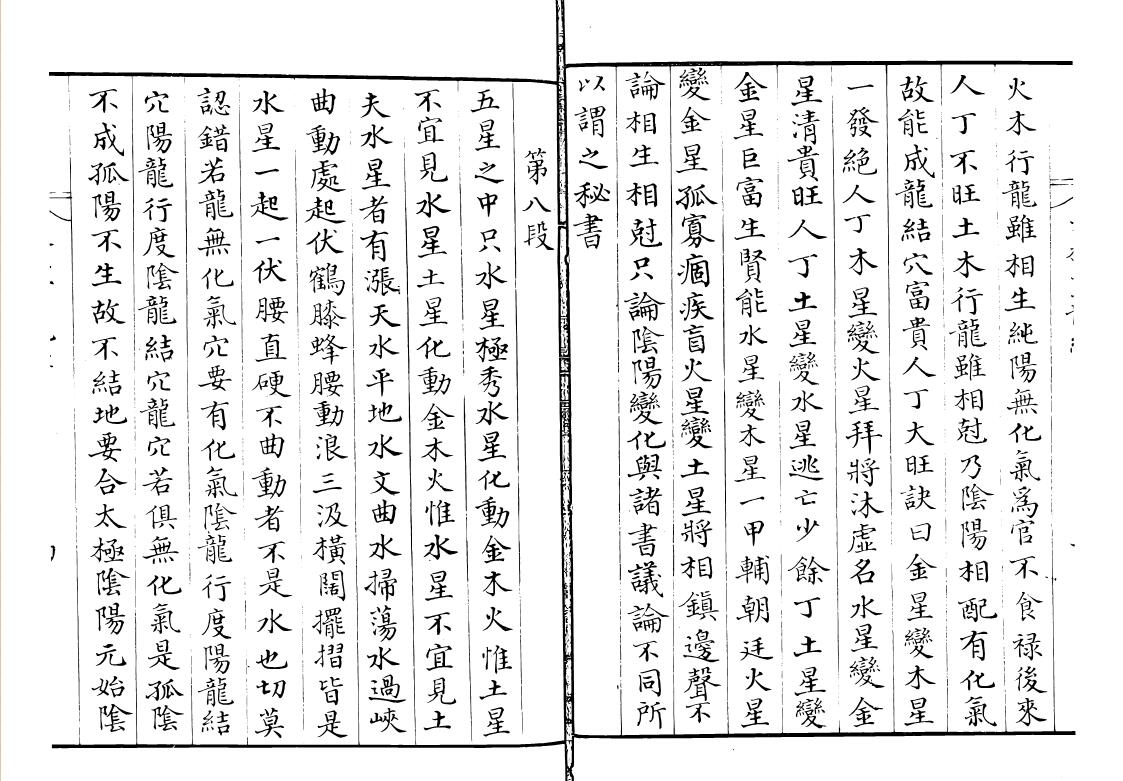 火木行龍雖相生純陽無化氣爲官不食禄後來
人丁不旺土木行龍雖相尅乃陰陽相配有化氣
故能成龍結穴富貴人丁大旺訣曰金星變木星
一發絶人丁木星變火星拜將沐虚名水星變金
星清貴旺人丁土星變水星逃亡少餘丁土星變
金星巨富生賢能水星變木星一甲輔朝廷火星
變金星孤寡痼疾盲火星變土星將相鎮邊聲不
論相生相尅只論陰陽變化與諸書議論不同所
以謂之秘書
第八段
五星之中只水星極秀水星化動金木火惟土星
不宜見水星土星化動金木火惟水星不宜見土
夫水星者有漲天水平地水文曲水掃蕩水過峽
曲動處起伏鶴膝蜂腰動浪三汲橫闊擺摺皆是
水星一起一伏腰直硬不曲動者不是水也切莫
認錯若龍無化氣穴要有化氣陰龍行度陽龍結
穴陽龍行度陰龍結穴龍穴若俱無化氣是孤陰
不成孤陽不生故不結地要合太極陰陽元始陰